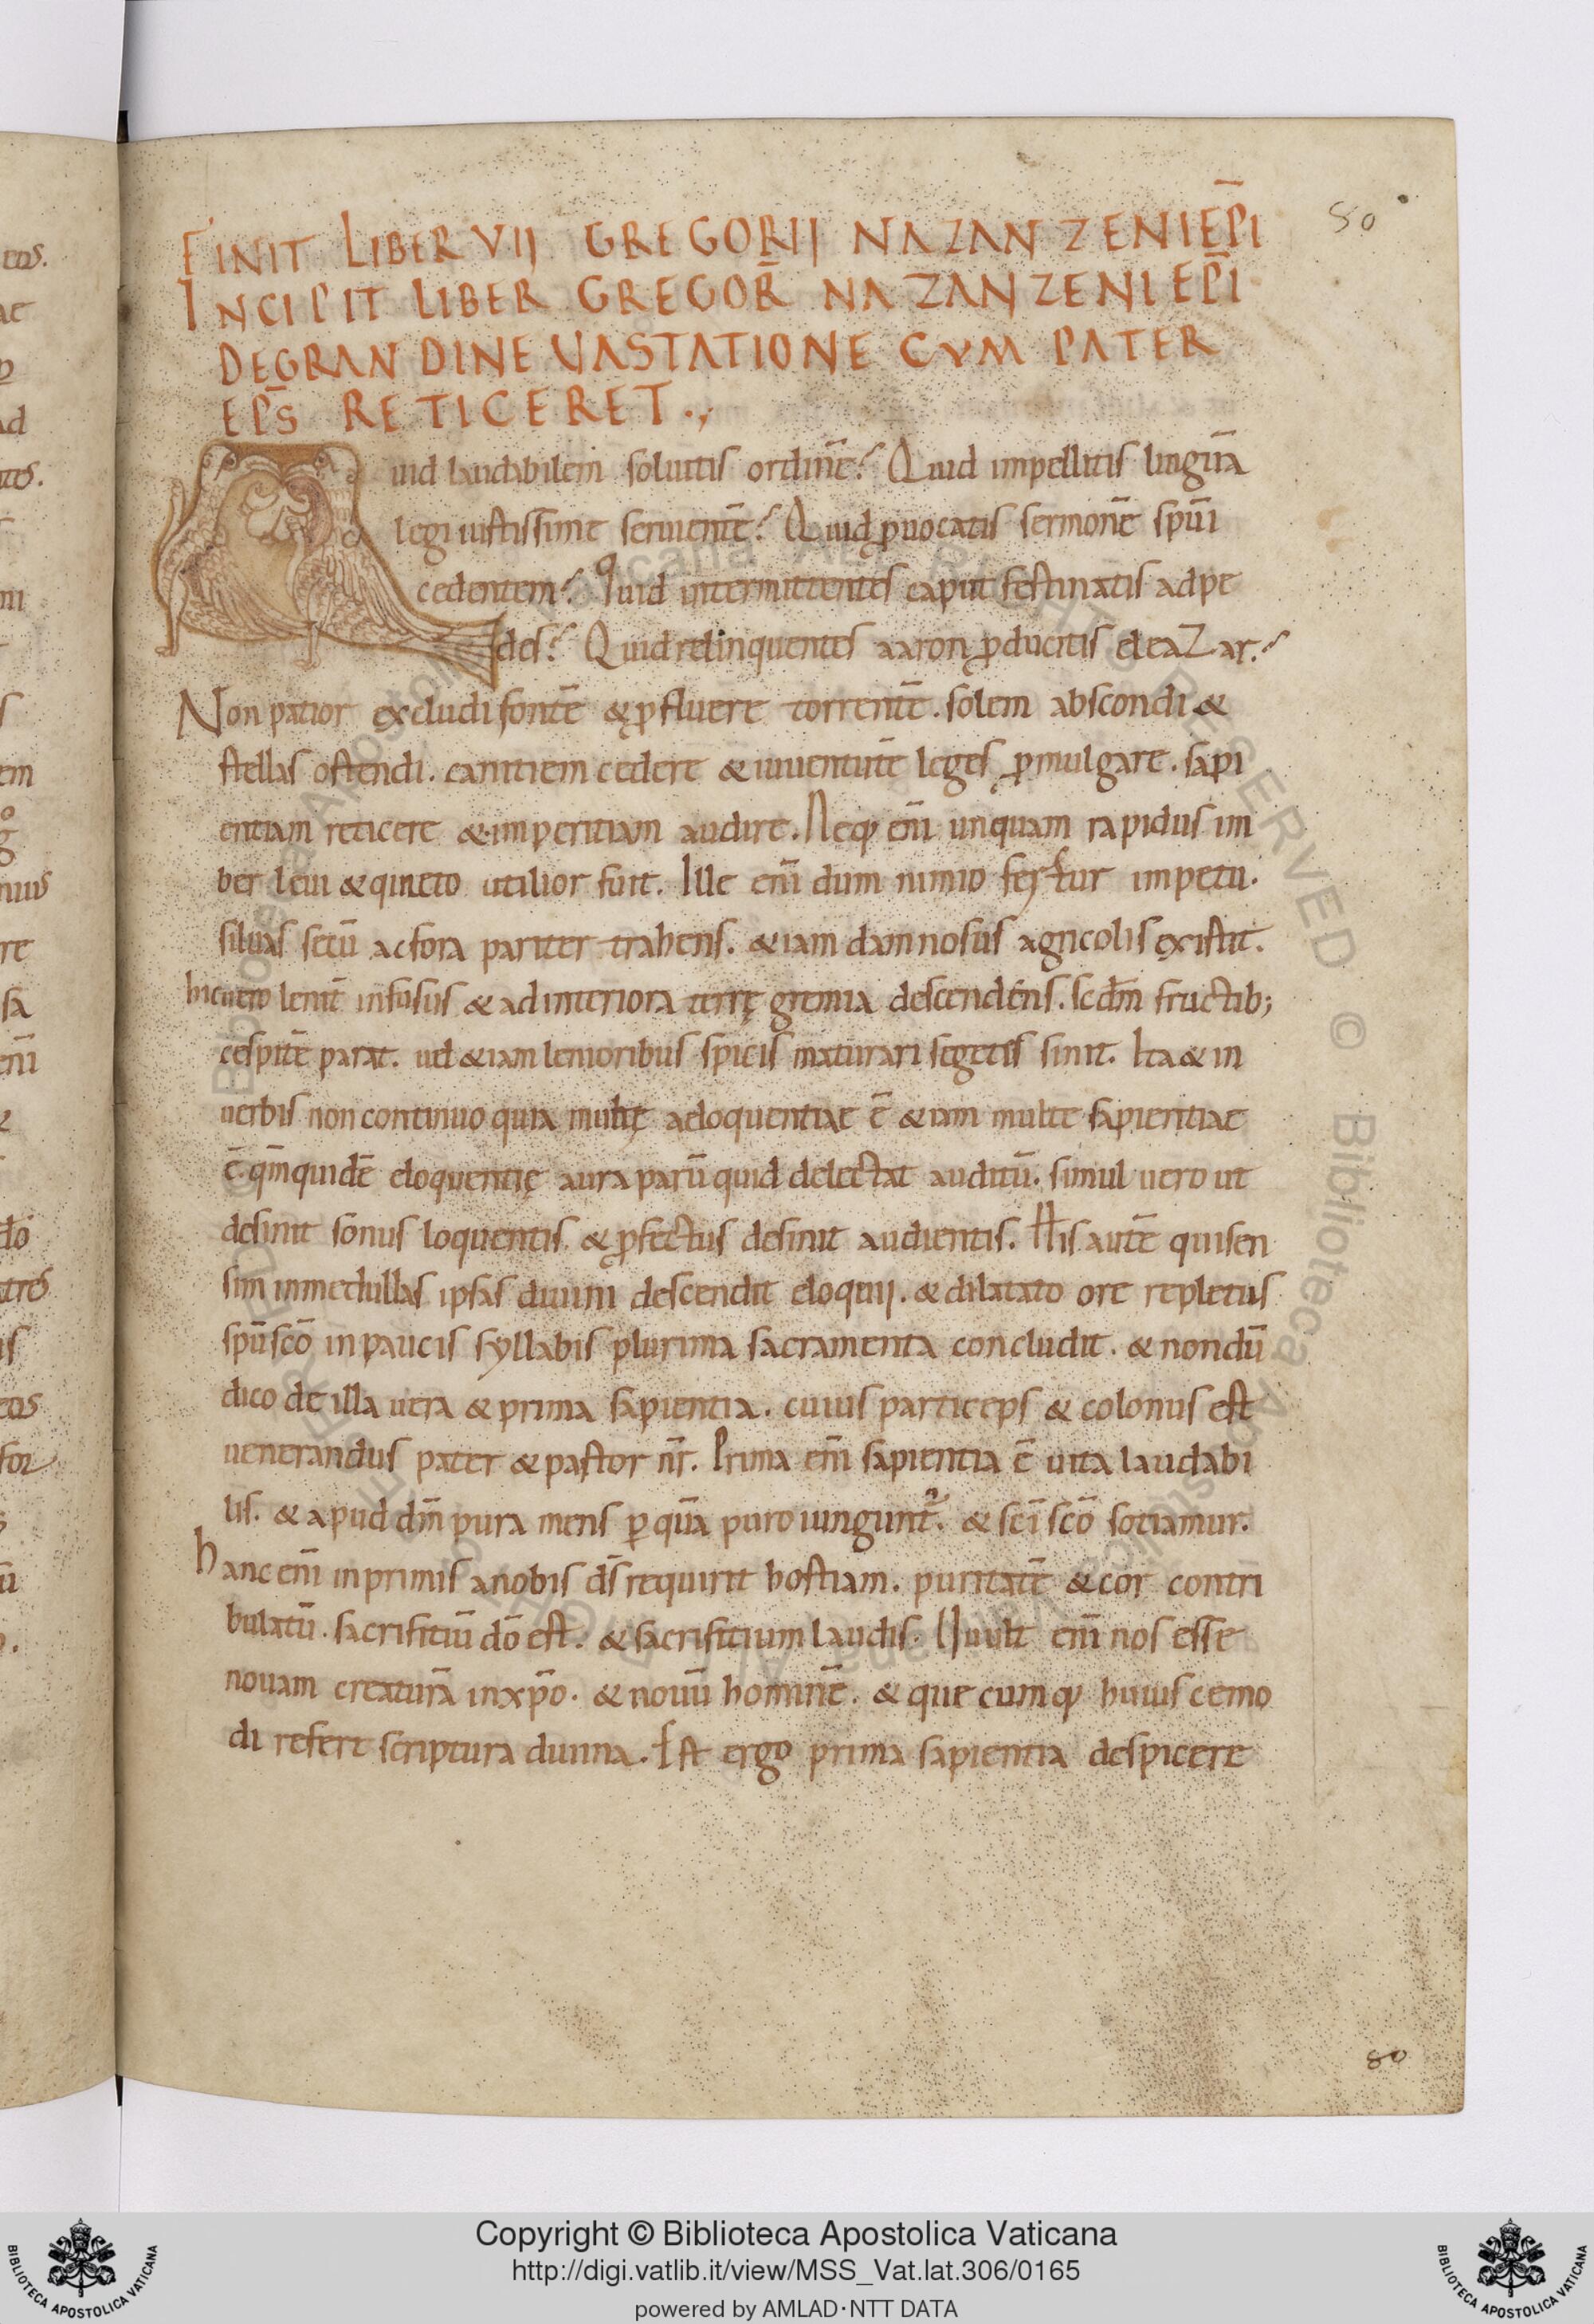 80
FINIT LIBER VII GREGORII NAZANZENI EP̅I
INCIPIT LIBER GREGOR̅ NAZANZENI EP̅I
DE GRANDINE UASTATIONE CVM PATER
EP̅S RETICERET.,
Quid laudabilem soluitis ordinē? Quid impellitis linguā
legi iustissime seruientē? Quid ꝓuocatis sermonē spūi
cedentem? Quid intermittentes caput festinatis ad pe
des? Quid relinquentes aaron ꝓducitis eleaZar?
Non patior excludi fontē & ꝓfluere torrentē. solem abscondi &
stellas ostendi. canitiem cedere & iuuentutē leges ꝓmulgare. sapi
entiam reticere & imperitiam audire. Neq; eni̅ unquam rapidus im
ber leui & quieto utilior fuit. Ille eni̅ dum nimio fertur impetu.
siluas secū ac fora pariter trahens. &iam damnosus agricolis existit.
hic uero lenit̅ infusus & ad interiora terrę gremia descendens. scdm̅ fructib;
cespitē parat. uel &iam lenioribus spicis maturari segetis sinit. Ita & in
uerbis non continuo quia multę aeloquentiae ē &iam multe sapientiae
ē. qm̅ quidē eloquentię aura parū quid delectat auditū. simul uero ut
desinit sonus loquentis & ꝓfectus desinit audientis. His autē qui sen
sim in medullas ipsas diuini descendit eloquii. & dilatato ore repletus
spū scō in paucis syllabis plurima sacramenta concludit. & nondū
dico de illa uera & prima sapientia. cuius particeps & colonus est
uenerandus pater & pastor nr̅. Prima eni̅ sapientia ē uita laudabi
lis. & apud dm̅ pura mens ꝑ quā puro iungunt̅. & sci̅ scō sotiamur.
hanc eni̅ in primis a nobis ds̅ requirit hostiam. puritatē & cor contri
bulatū. sacrifitiū dō est. & sacrifitium laudis. Uult eni̅ nos esse
nouam creaturā in xp̅o. & nouū hominē. & que cumq; huiuscemo
di refert scriptura diuina. Est ergo prima sapientia despicere
80
Copyright © Biblioteca Apostolica Vaticana
http://digi.vatlib.it/view/MSS_Vat.lat.306/0165
powered by AMLAD·NTT DATA
BIBLIOTECA APOSTOLICA VATICANA
BIBLIOTECA APOSTOLICA VATICANA